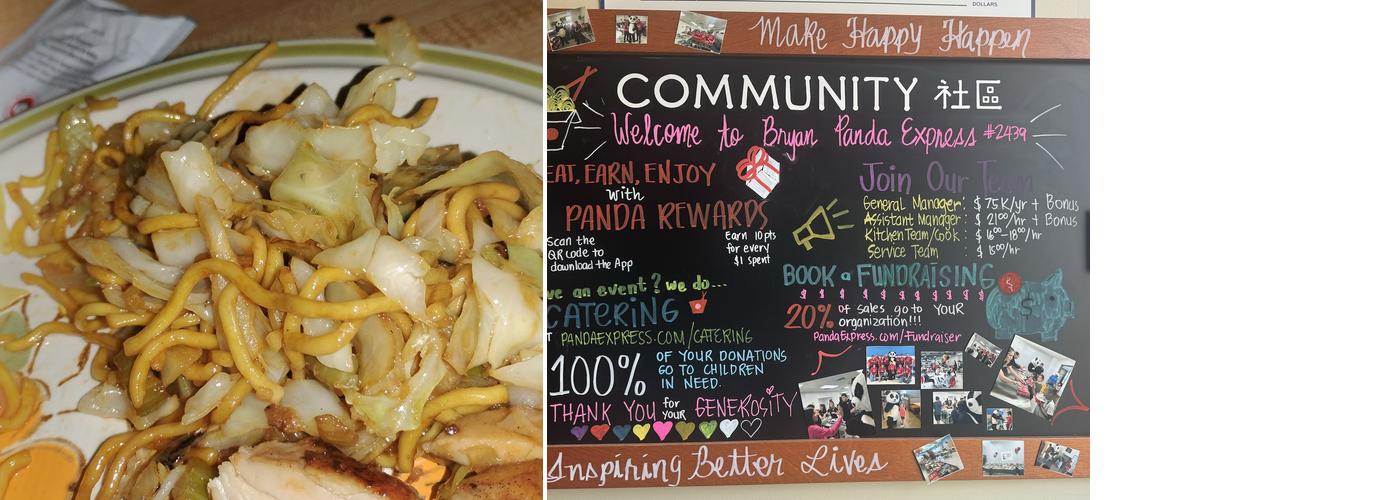 DOLLARS
Make Happy Happen
COMMUNITY 社區
Welcome to Bryan Panda Express #2439
EAT, EARN, ENJOY
with
PANDA REWARDS
Scan the
QR code to
download the App
Earn 10pts
for every
$1 spent
Join Our Team
General Manager: $75K/yr + Bonus
Assistant Manager: $21⁰⁰/hr + Bonus
Kitchen Team/Cook: $16⁰⁰-18⁰⁰/hr
Service Team: $15⁰⁰/hr
ve an event? we do...
CATERING
PANDAEXPRESS.COM/CATERING
BOOK a FUNDRAISING
$ $ $ $ $ $ $ $ $ $
20% of sales go to YOUR
organization!!!
PandaExpress.com/Fundraiser
100% OF YOUR DONATIONS
GO TO CHILDREN
IN NEED.
THANK YOU for your GENEROSITY
Inspiring Better Lives